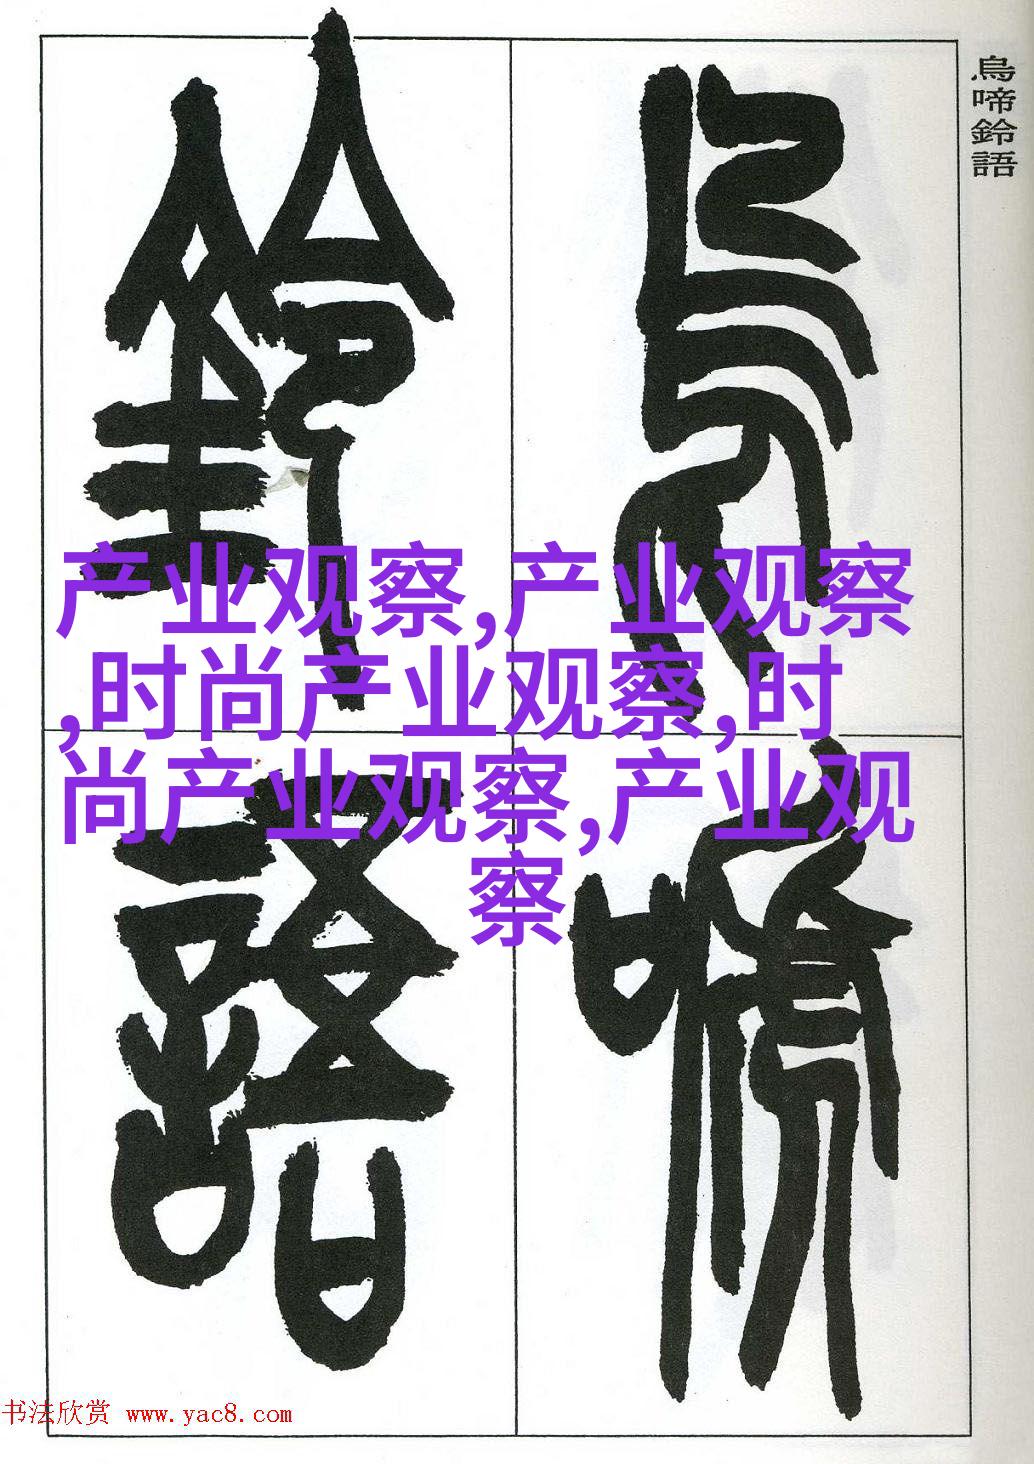 烏啼鈴語
烏啼
鈴語
产业观察,产业观察
,时尚产业观察,时
尚产业观察,产业观
察
书法欣赏 www.yac8.com